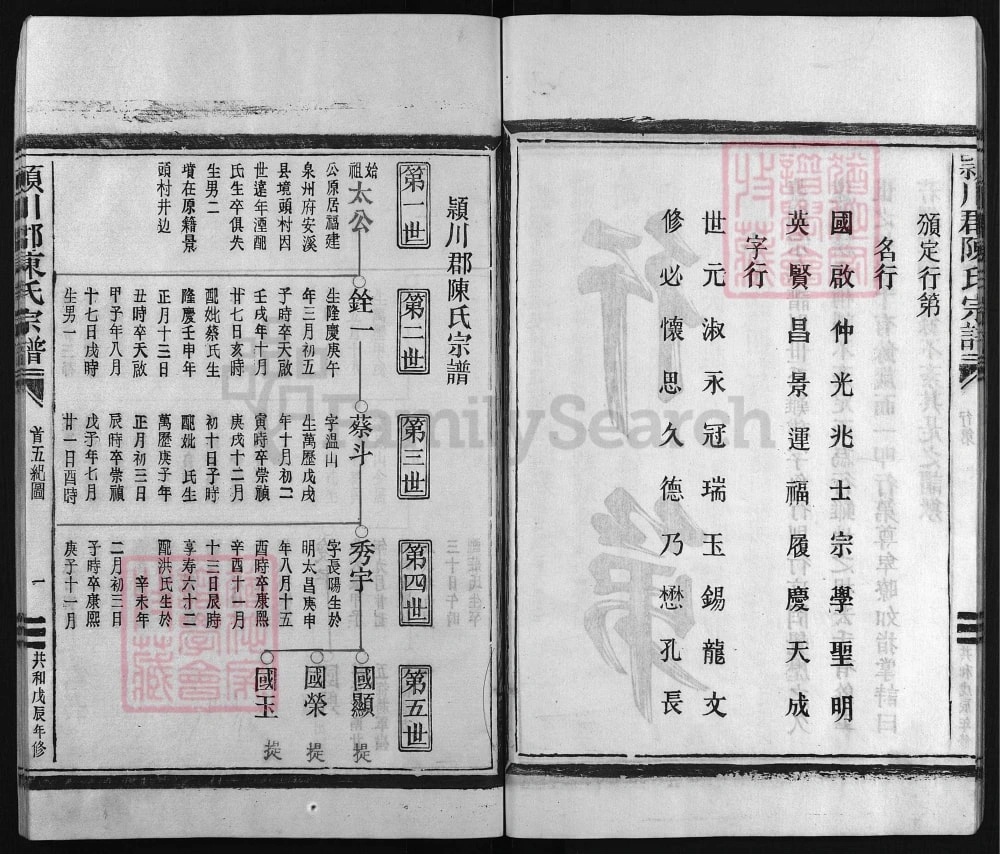 穎川郡陳氏宗譜
頒定行第
名行
國啟仲光兆士宗學聖明
英賢昌景運福履慶天成
字行
世元淑永冠瑞玉錫龍文
修必懷思久德乃懋孔長
行第
穎川郡陳氏宗譜
第一世
始祖太公
公原居福建
泉州府安溪
縣境頭村因
世遠年湮配
氏生卒俱失
生男二
墳在原籍景
頭村井边
第二世
銓一
生隆慶庚午
年三月初五
子時卒天啟
壬戌年十月
廿七日亥時
配妣蔡氏生
隆慶壬申年
正月十三日
丑時卒天啟
甲子年八月
十七日戌時
生男一
第三世
蔡斗
字溫山
生萬歷戊戌
年十月初二
寅時卒崇禎
庚戌十二月
初十日子時
配妣 氏生
萬歷庚子年
正月初三日
辰時卒崇禎
戊子年七月
廿一日酉時
第四世
秀宇
字長陽生於
明太昌庚申
年八月十五
酉時卒康熙
辛酉十一月
十三日辰時
享寿六十二
配洪氏生於
辛未年
二月初三日
子時卒康熙
庚子十一月
第五世
國顯 提
國榮 提
國玉 提
穎川郡陳氏宗譜
首五紀圖
一
共和戊辰年修
FamilySearch